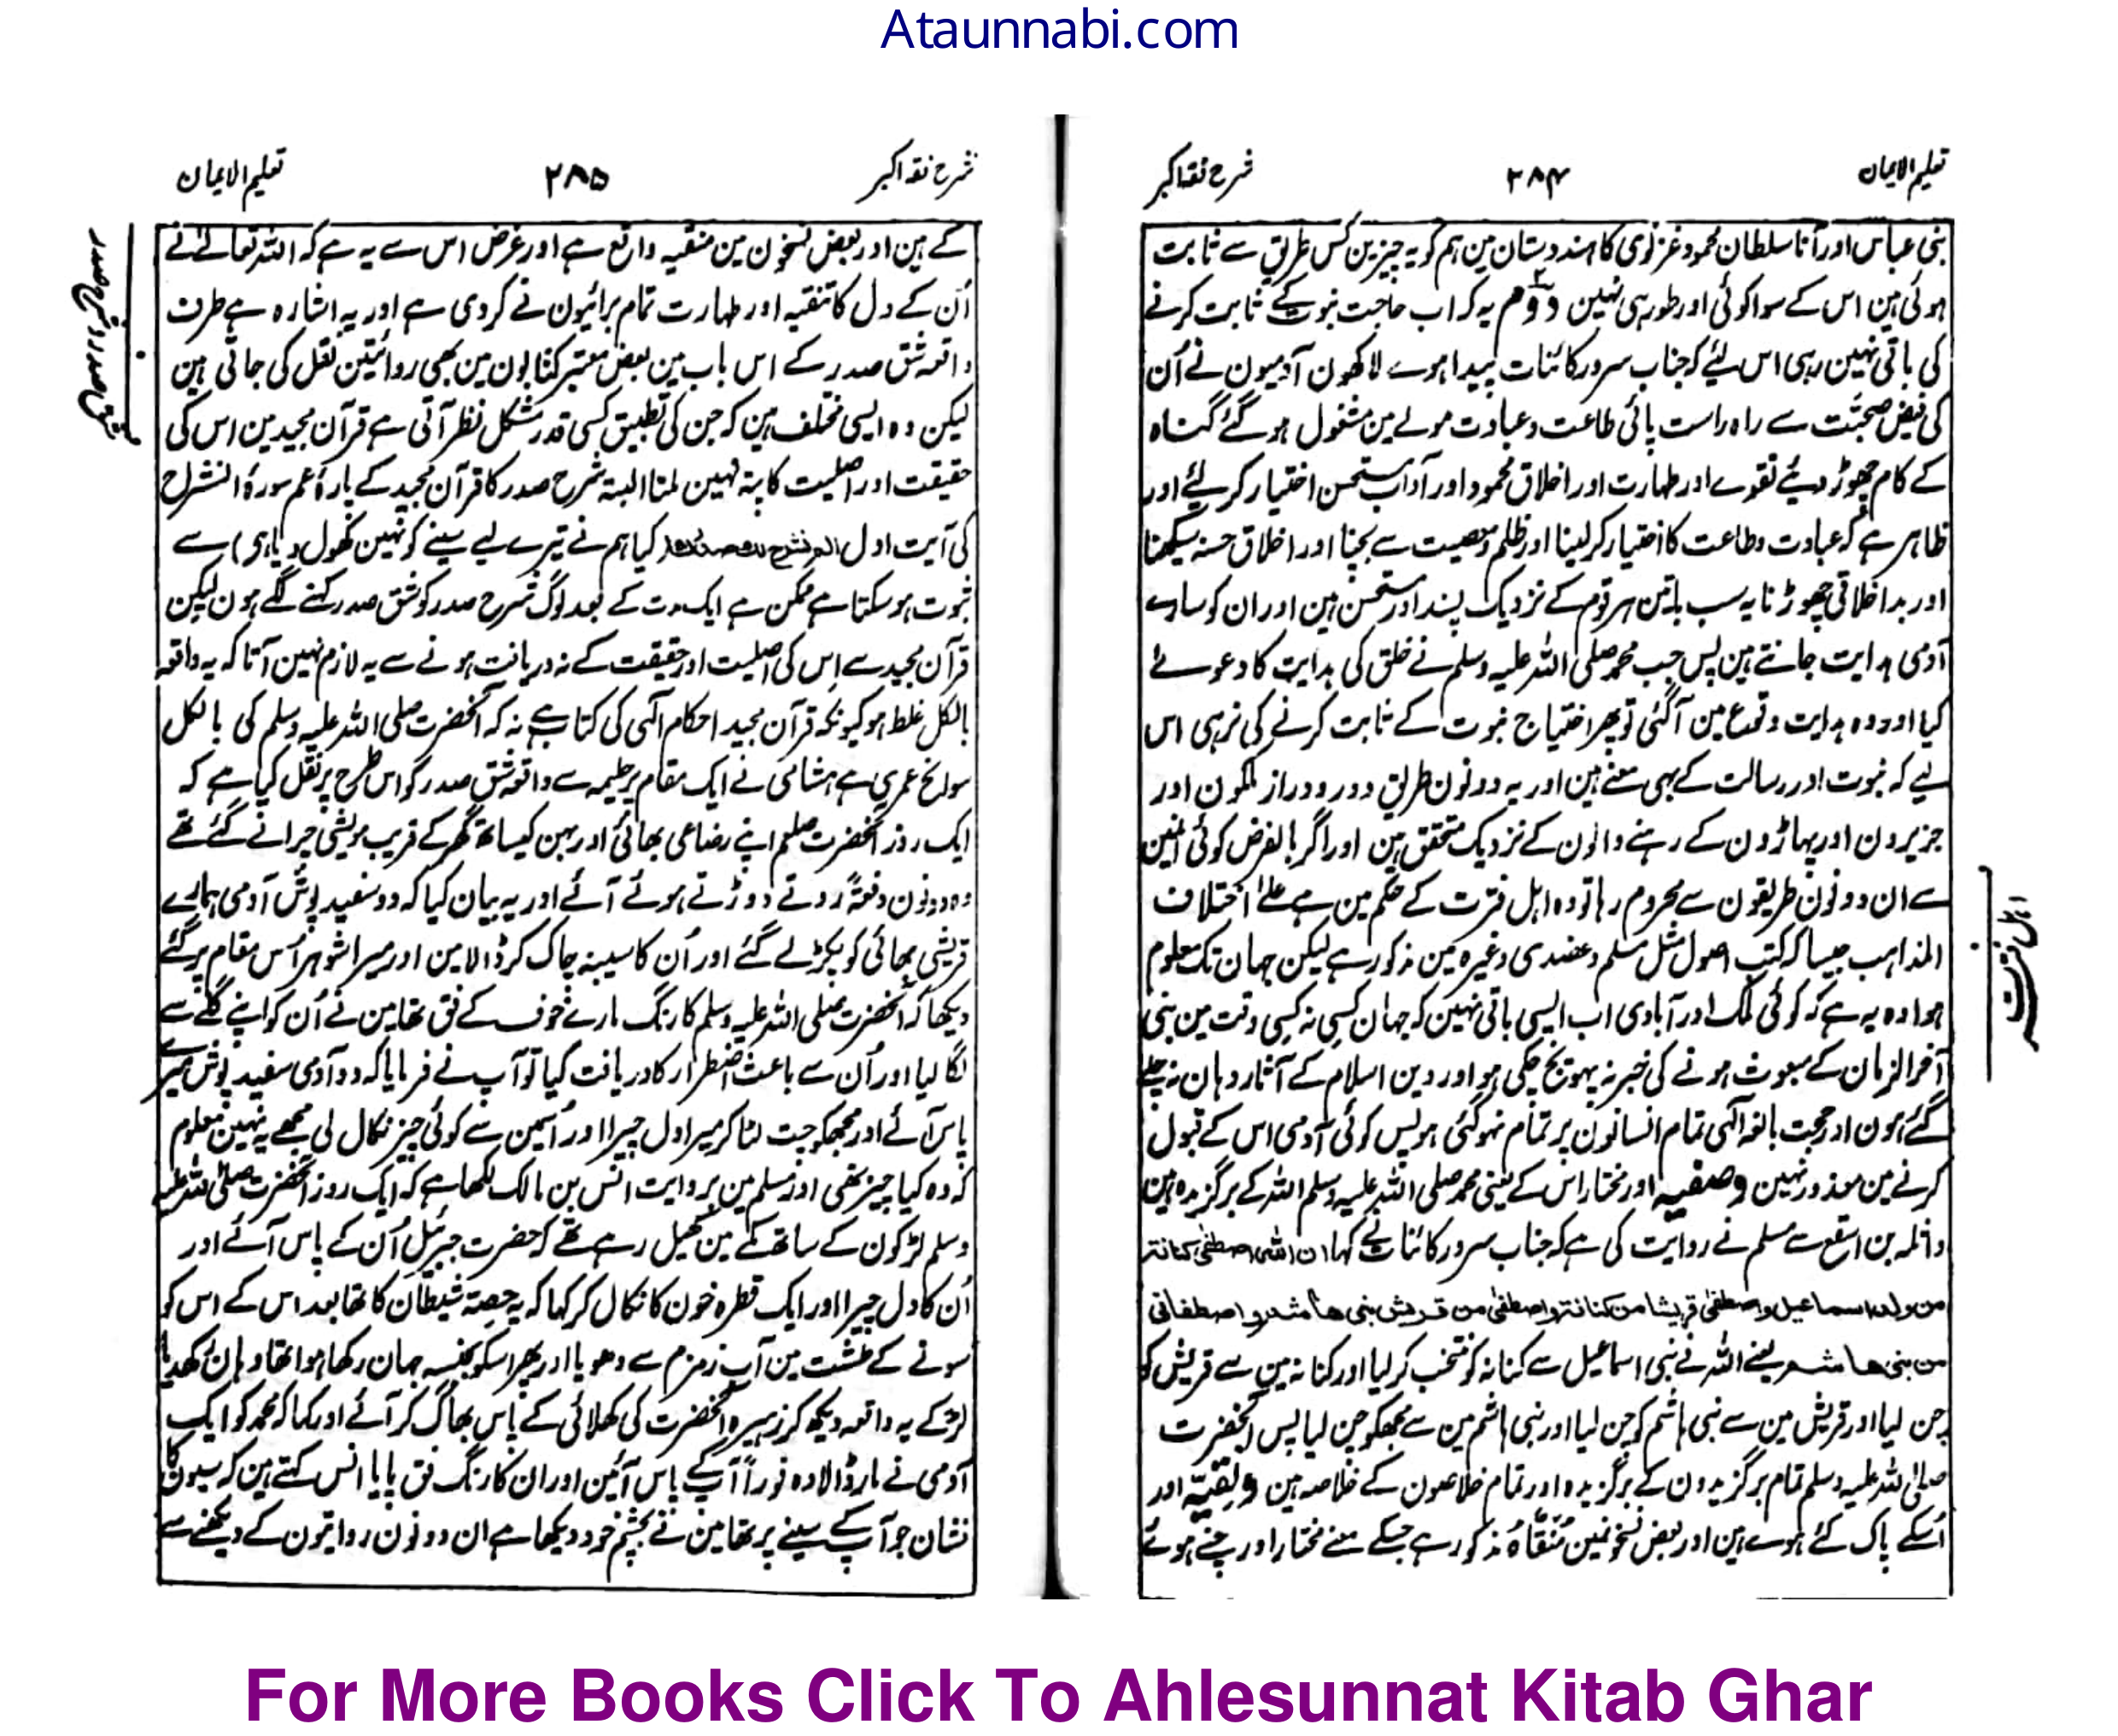 Ataunnabi.com
تعلیم الایمان
۲۸۴
شرح فقہ اکبر
بنی عباس اور آنا سلطان محمود غزنوی کا ہندوستان مین ہم کو یہ چیزین کس طریق سے ثابت
ہوئی ہین اس کے سوا کوئی اور طور ہی نہین دوم یہ کہ اب حاجت نبوت کے ثابت کرنے
کی باقی نہین رہی اس لیئے کہ جناب سرور کائنات پیدا ہوے لاکھون آدمیون نے اُن
کی فیض صحبت سے راہ راست پائی طاعت و عبادت مولے مین مشغول ہو گئے گناہ
کے کام چھوڑ دیئے تقوے اور طہارت اور اخلاق محمود اور آداب مستحسن اختیار کر لئے اور
ظاہر ہے کہ عبادت و طاعت کا اختیار کر لینا اور ظلم و معصیت سے بچنا اور اخلاق حسنہ سیکھنا
اور بد اخلاقی چھوڑنا یہ سب باتین ہر قوم کے نزدیک پسند اور مستحسن ہین اور ان کو سارے
آدمی ہدایت جانتے ہین پس جب محمد صلی اللہ علیہ وسلم نے خلق کی ہدایت کا دعوے
کیا اور وہ ہدایت وقوع مین آگئی تو پھر احتیاج نبوت کے ثابت کرنے کی نرہی اس
لیے کہ نبوت اور رسالت کے یہی معنے ہین اور یہ دونون طریق دور و دراز ملکون اور
جزیرون اور پہاڑون کے رہنے والون کے نزدیک متحقق ہین اور اگر بالفرض کوئی انمین
سے ان دونون طریقون سے محروم رہا تو وہ اہل فترت کے حکم مین ہے علے اختلاف
المذاہب جیسا کہ کتب اصول مثل مسلم و عضدی وغیرہ مین مذکور ہے لیکن جہان تک معلوم
ہوا وہ یہ ہے کہ کوئی ملک اور آبادی اب ایسی باقی نہین کہ جہان کسی نہ کسی وقت مین بنی
آخر الزمان کے مبعوث ہونے کی خبر نہ پہونچ چکی ہو اور دین اسلام کے آثار وہان نہ چلے
گئے ہون اور حجت بالغہ الٰہی تمام انسانون پر تمام نہو گئی ہو پس کوئی آدمی اس کے قبول
کرنے مین معذور نہین وصفیہ اور مختار اس کے یعنی محمد صلی اللہ علیہ وسلم اللہ کے برگزیدہ ہین
واثلہ بن اسقع سے مسلم نے روایت کی ہے کہ جناب سرور کائنات نے کہا ان اللہ اصطفی کنانة
من ولد اسماعیل واصطفی قریشا من کنانة واصطفی من قریش بنی ھاشم واصطفانی
من بنی ھاشم یعنے اللہ نے بنی اسماعیل سے کنانہ کو منتخب کر لیا اور کنانہ مین سے قریش کو
چن لیا اور قریش مین سے بنی ہاشم کو چن لیا اور بنی ہاشم مین سے مجھکو چن لیا پس آنحضرت
صلی اللہ علیہ وسلم تمام برگزیدون کے برگزیدہ اور تمام خلاصون کے خلاصہ ہین ونقیہ اور
اُسکے پاک کئے ہوے ہین اور بعض نسخونمین مُنَقَّاہُ مذکور ہے جسکے معنے مختار اور چنے ہوئے
اہل فترت
شرح فقہ اکبر
۲۸۵
تعلیم الایمان
کے ہین اور بعض نسخون مین منقیہ واقع ہے اور غرض اس سے یہ ہے کہ اللہ تعالےٰ نے
اُن کے دل کا تنقیہ اور طہارت تمام برائیون نے کر دی ہے اور یہ اشارہ ہے طرف
واقعہ شق صدر کے اس باب مین بعض معتبر کتابون مین بھی روائتین نقل کی جاتی ہین
لیکن وہ ایسی مختلف ہین کہ جن کی تطبیق کسی قدر مشکل نظر آتی ہے قرآن مجید مین اس کی
حقیقت اور اصلیت کا پتہ نہین ملتا البتہ شرح صدر کا قرآن مجید کے پارۂ عم سورۂ انشراح
کی آیت اول الم نشرح لک صدرک (کیا ہم نے تیرے لیے سینے کو نہین کھول دیا ہی) سے
ثبوت ہو سکتا ہے ممکن ہے ایک مدت کے بعد لوگ شرح صدر کو شق صدر کہنے لگے ہون لیکن
قرآن مجید سے اس کی اصلیت اور حقیقت کے نہ دریافت ہونے سے یہ لازم نہین آتا کہ یہ واقعہ
بالکل غلط ہو کیونکہ قرآن مجید احکام الٰہی کی کتاب ہے نہ کہ آنحضرت صلی اللہ علیہ وسلم کی بالکل
سوانح عمری ہے ہشامی نے ایک مقام پر حلیمہ سے واقعہ شق صدر کو اس طرح پر نقل کیا ہے کہ
ایک روز آنحضرت صلعم اپنے رضاعی بھائی اور بہن کیساتھ گھر کے قریب مویشی چرانے گئے تھے
وہ دونون دفعۃً روتے دوڑتے ہوئے آئے اور یہ بیان کیا کہ دو سفید پوش آدمی ہمارے
قریشی بھائی کو پکڑ لے گئے اور اُن کا سینہ چاک کر ڈالا مین اور میرا شوہر اُس مقام پر گئے
دیکھا کہ آنحضرت صلی اللہ علیہ وسلم کا رنگ مارے خوف کے فق تھا مین نے اُن کو اپنے گلے سے
لگا لیا اور اُن سے باعث اضطرار کا دریافت کیا تو آپ نے فرمایا کہ دو آدمی سفید پوش میرے
پاس آئے اور مجھکو چت لٹا کر میرا دل چیرا اور اُسمین سے کوئی چیز نکال لی مجھے یہ نہین معلوم
کہ وہ کیا چیز تھی اور مسلم مین بروایت انس بن مالک لکھا ہے کہ ایک روز آنحضرت صلی اللہ علیہ
وسلم لڑکون کے ساتھ مکے مین کھیل رہے تھے کہ حضرت جبرئیل اُن کے پاس آئے اور
اُن کا دل چیرا اور ایک قطرہ خون کا نکال کر کہا کہ یہ حصہ شیطان کا تھا بعد اس کے اس کو
سونے کے طشت مین آب زمزم سے دھویا اور پھر اسکو بجنسہ جہان رکھا ہوا تھا وہان رکھدیا
لڑکے یہ واقعہ دیکھ کر زہیرہ آنحضرت کی کھلائی کے پاس بھاگ کر آئے اور کہا کہ محمد کو ایک
آدمی نے مار ڈالا وہ فوراً آپ کے پاس آئین اور ان کا رنگ فق پایا انس کہتے ہین کہ سیون کا
نشان جو آپ کے سینے پر تھا مین نے بچشم خود دیکھا ہے ان دونون روایتون کے دیکھنے سے
شق صدر و شرح صدر
For More Books Click To Ahlesunnat Kitab Ghar